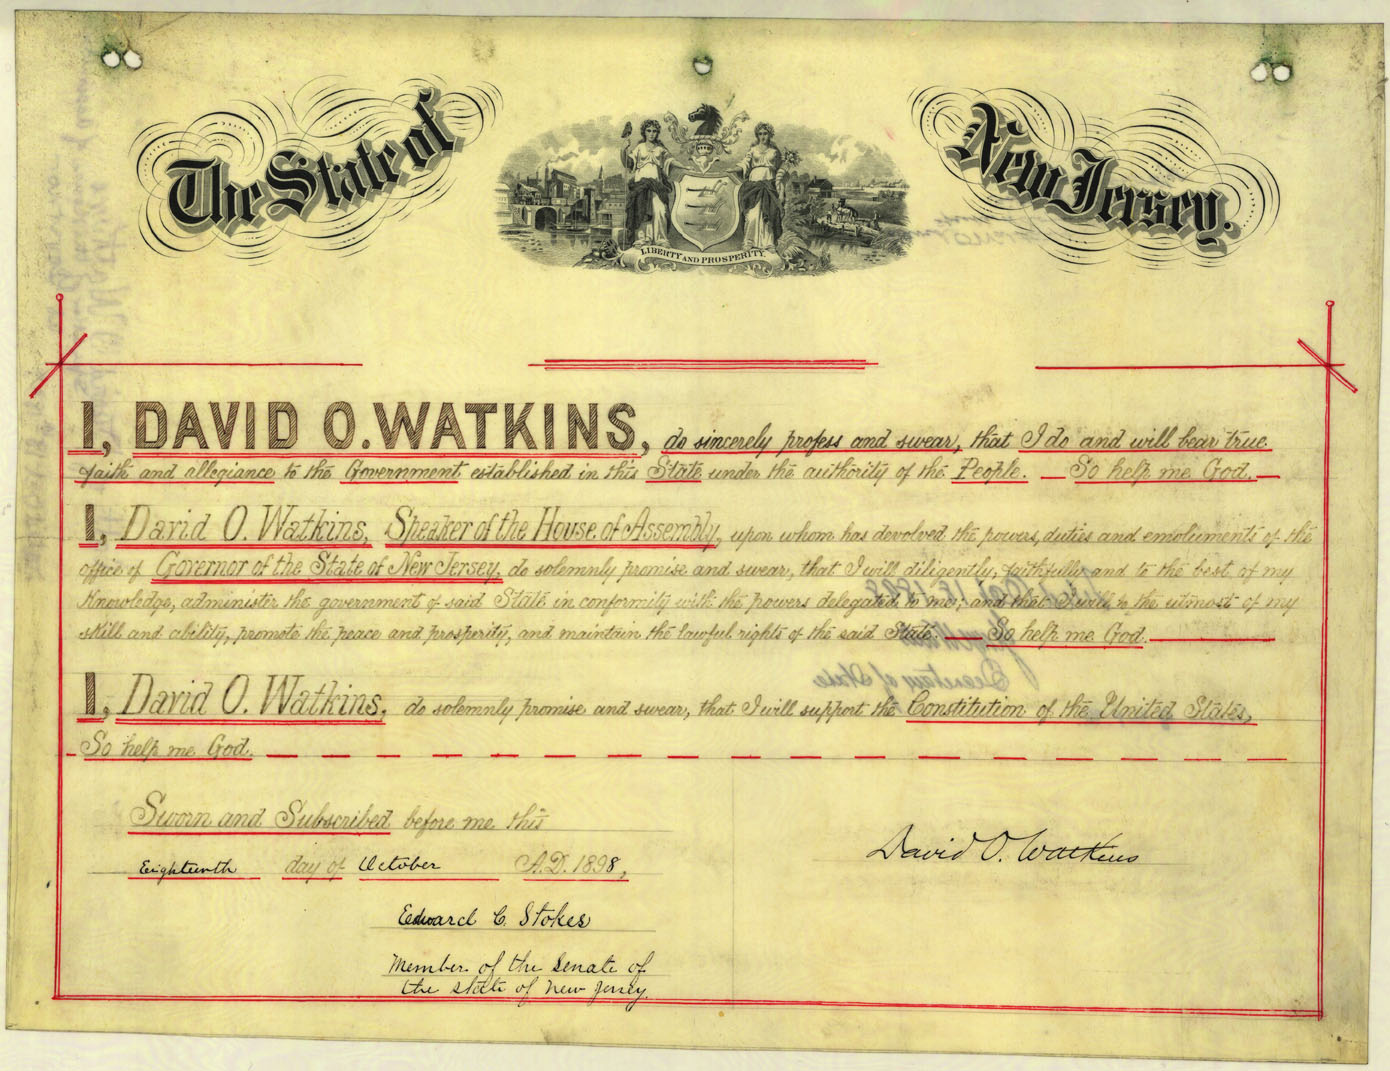 The State of New Jersey.
LIBERTY AND PROSPERITY
I, DAVID O. WATKINS, do sincerely profess and swear, that I do and will bear true
faith and allegiance to the Government established in this State under the authority of the People. — So help me God. —
I, David O. Watkins, Speaker of the House of Assembly, upon whom has devolved the powers, duties and emoluments of the
office of Governor of the State of New Jersey, do solemnly promise and swear, that I will diligently, faithfully and to the best of my
knowledge, administer the government of said State in conformity with the powers delegated to me; and that I will to the utmost of my
skill and ability, promote the peace and prosperity, and maintain the lawful rights of the said State. — So help me God. —
I, David O. Watkins, do solemnly promise and swear, that I will support the Constitution of the United States,
So help me God.
Sworn and Subscribed before me this
Eighteenth day of October A.D. 1898,
David O. Watkins
Edward C. Stokes
Member of the Senate of
the State of New Jersey.
Secretary of State